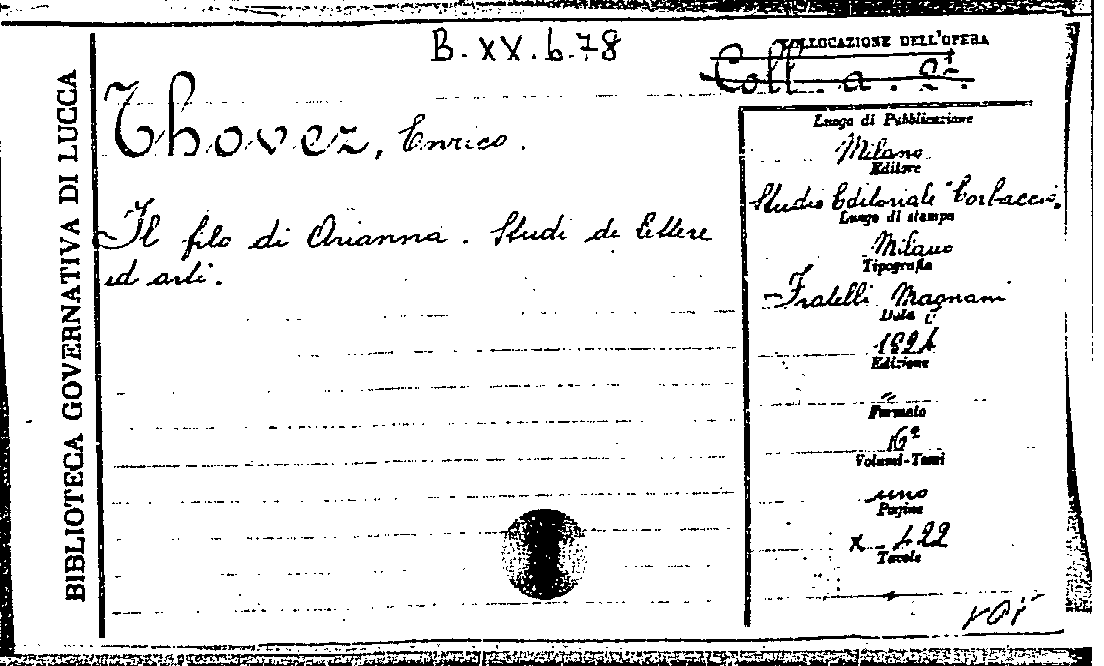 B. XX. b. 78
COLLOCAZIONE DELL'OPERA
Coll. a. 2ª.
BIBLIOTECA GOVERNATIVA DI LUCCA
Thovez, Enrico.
Il filo di Arianna. Studi di lettere
ed arti.
Luogo di Pubblicazione
Milano
Editore
Studio Editoriale "Corbaccio"
Luogo di stampa
Milano
Tipografia
Fratelli Magnani
Data
Edizione
"
Formato
16º
Volumi-Tomi
uno
Pagine
X - 422
Tavole